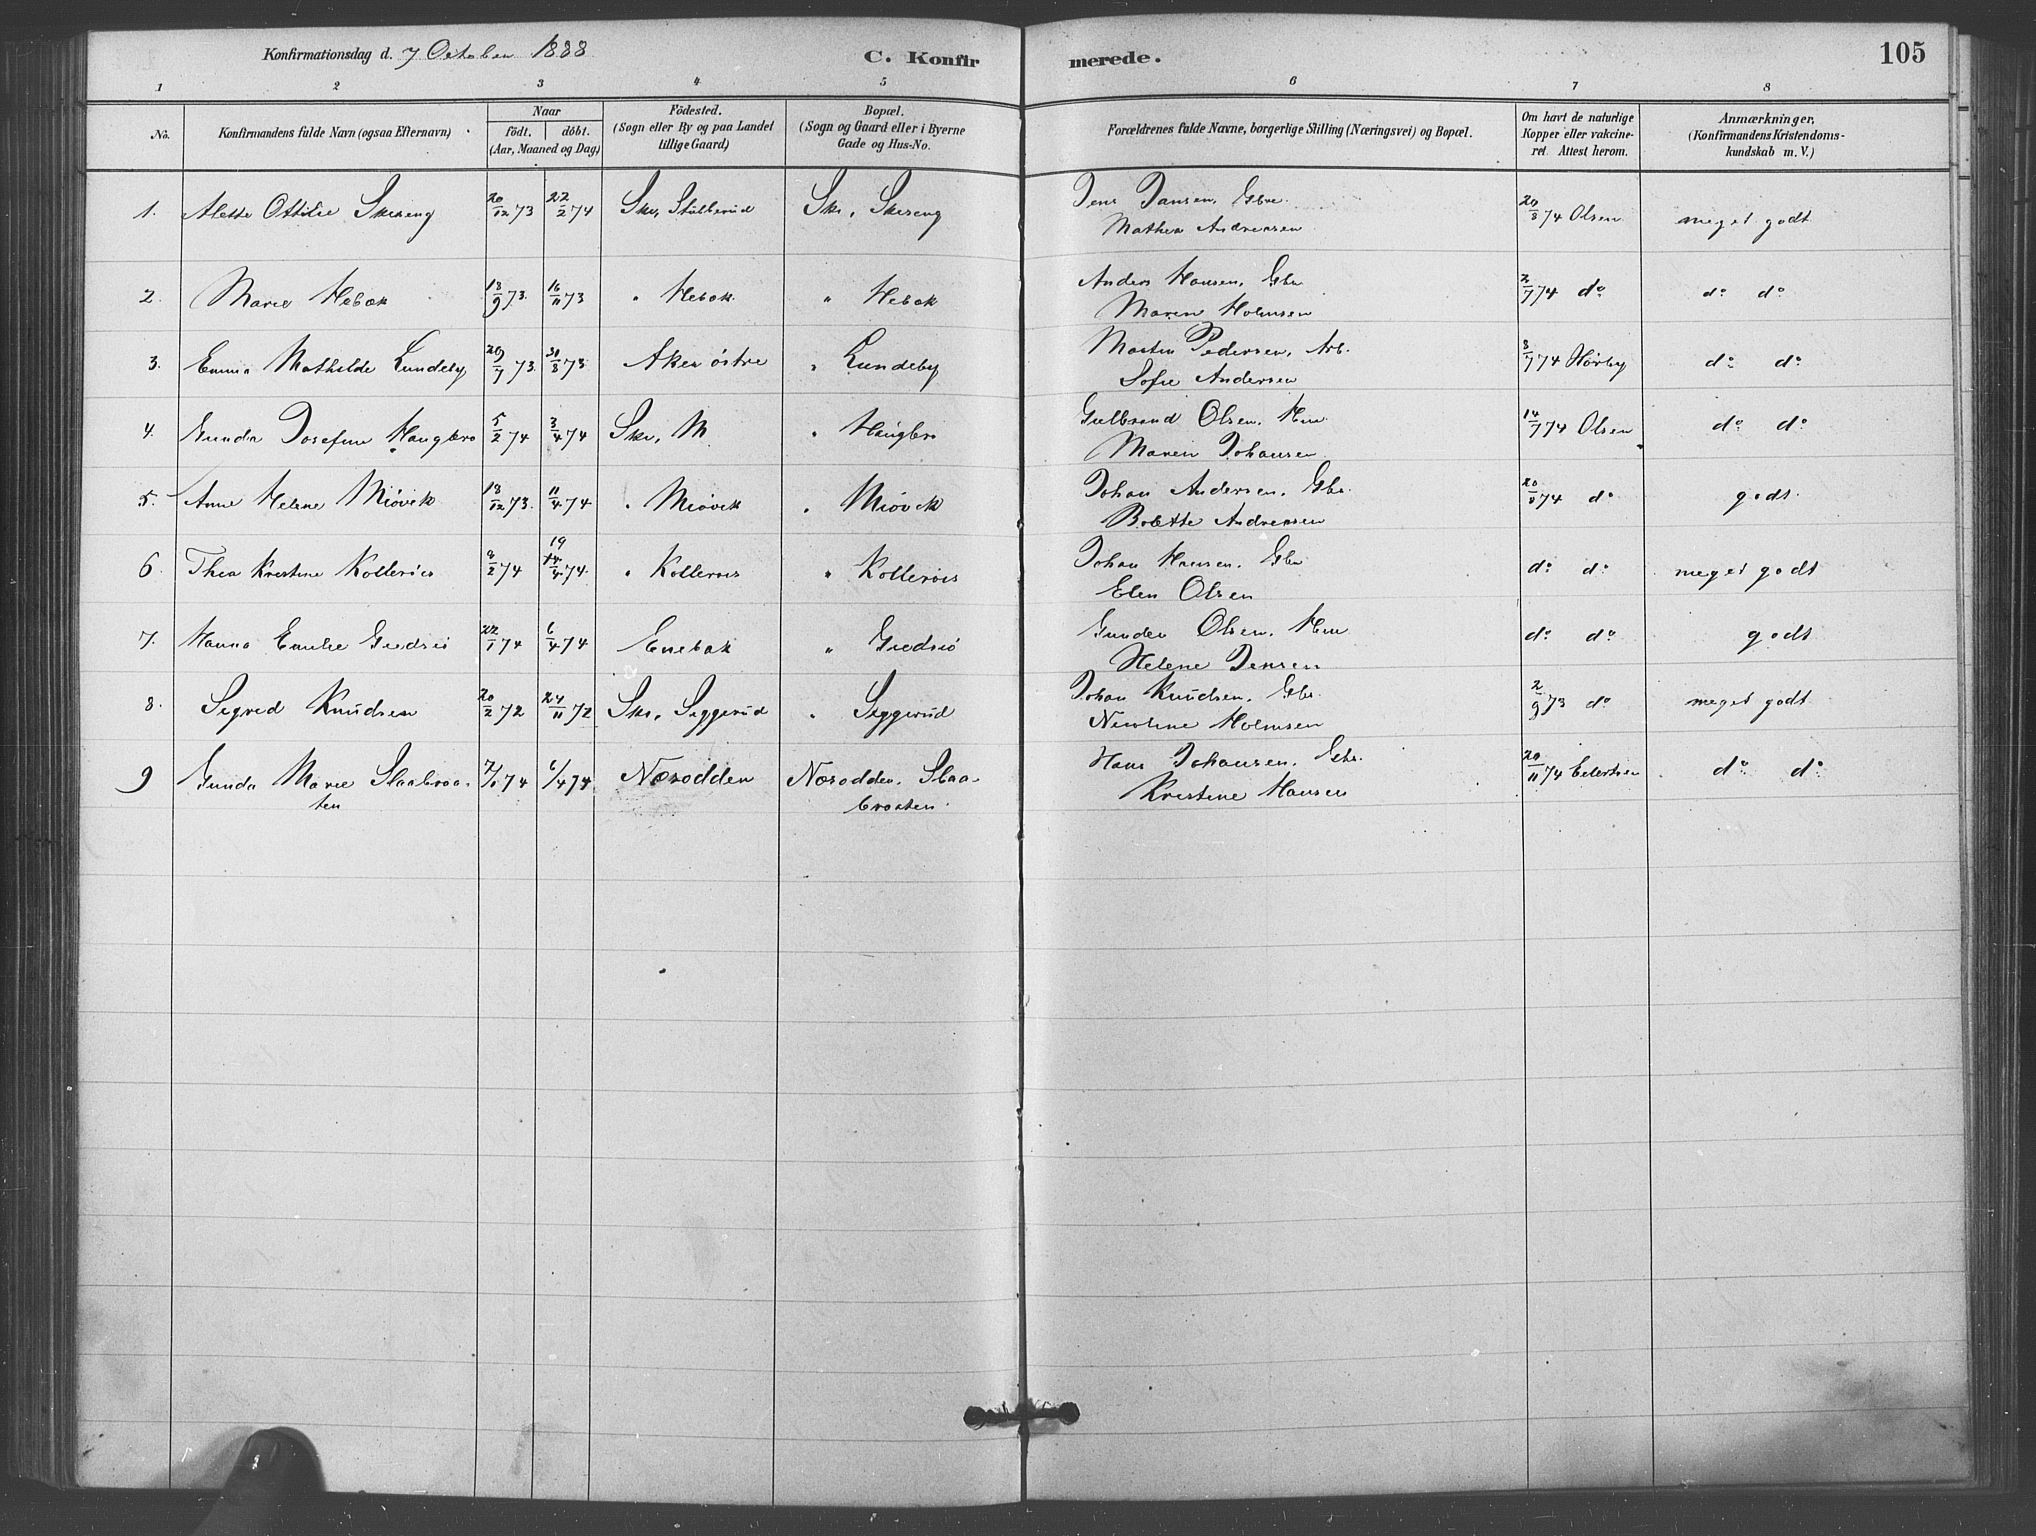 Konfirmationsdag d. 7 October 1888
C. Konfirmerede.
105
1 2 3 4 5 6 7 8
No.
Konfirmandens fulde Navn (ogsaa Efternavn)
Naar
födt. döbt.
(Aar, Maaned og Dag)
Födested.
(Sogn eller By og paa Landet
tillige Gaard)
Bopæl.
(Sogn og Gaard eller i Byerne
Gade og Hus-No.
Forældrenes fulde Navne, borgerlige Stilling (Næringsvei) og Bopæl.
Om havt de naturlige
Kopper eller vakcine-
ret. Attest herom.
Anmærkninger,
(Konfirmandens Kristendoms-
kundskab m. V.)
1. Alette Ottilie Skiseng 20/12 73 22/2 74 Ski, Stubberud Ski, Skiseng Jens Jansen, Gbr. 20/8 74 Olsen meget godt
Mathea Andreasen
2. Marie Hebæk 18/9 73. 16/11 73 " Hebæk " Hebæk Anders Hansen, Gbr 2/7 74 do do do
Maren Holmsen
3. Emma Mathilde Lundeby 29/7 73. 31/8 73 Aker østre " Lundeby Martin Pedersen, Arb. 8/7 74 Hørby do do
Sofie Andersen
4. Gunda Josefine Haugbro 5/2 74 3/4 74 Ski, M " Haugbro Gulbrand Olsen, Hm 14/7 74 Olsen do do
Maren Johansen
5. Anne Helene Midvek 18/12 73. 11/4 74 " Miøvik " Miøvik Johan Andersen, Gbr. 20/8 74 do godt.
Bolette Andreasen
6. Thea Kristine Kollerøis 8/2 74 19 14/4 74. " Kollerøis " Kollerøis Johan Hansen, Gbr do do meget godt
Elen Olsen
7. Hanna Emilie Gjedsiø 22/1 74 6/4 74 Enebak " Gjedsiø Gunder Olsen, Hm do do godt
Helene Jensen
8. Sigrid Knudsen 20/2 72 24/11 72 Ski, Siggerud " Siggerud Johan Knudsen, Gbr. 2/9 73 do meget godt
Nicoline Holmsen
9 Gunda Marie Slaabraa- 7/1 74 6/4 74 Næsodden Næsodden, Slaa- Hans Johansen, Gbr. 20/11 74 Eilertsen do do
ten braaten Kristine Hansen